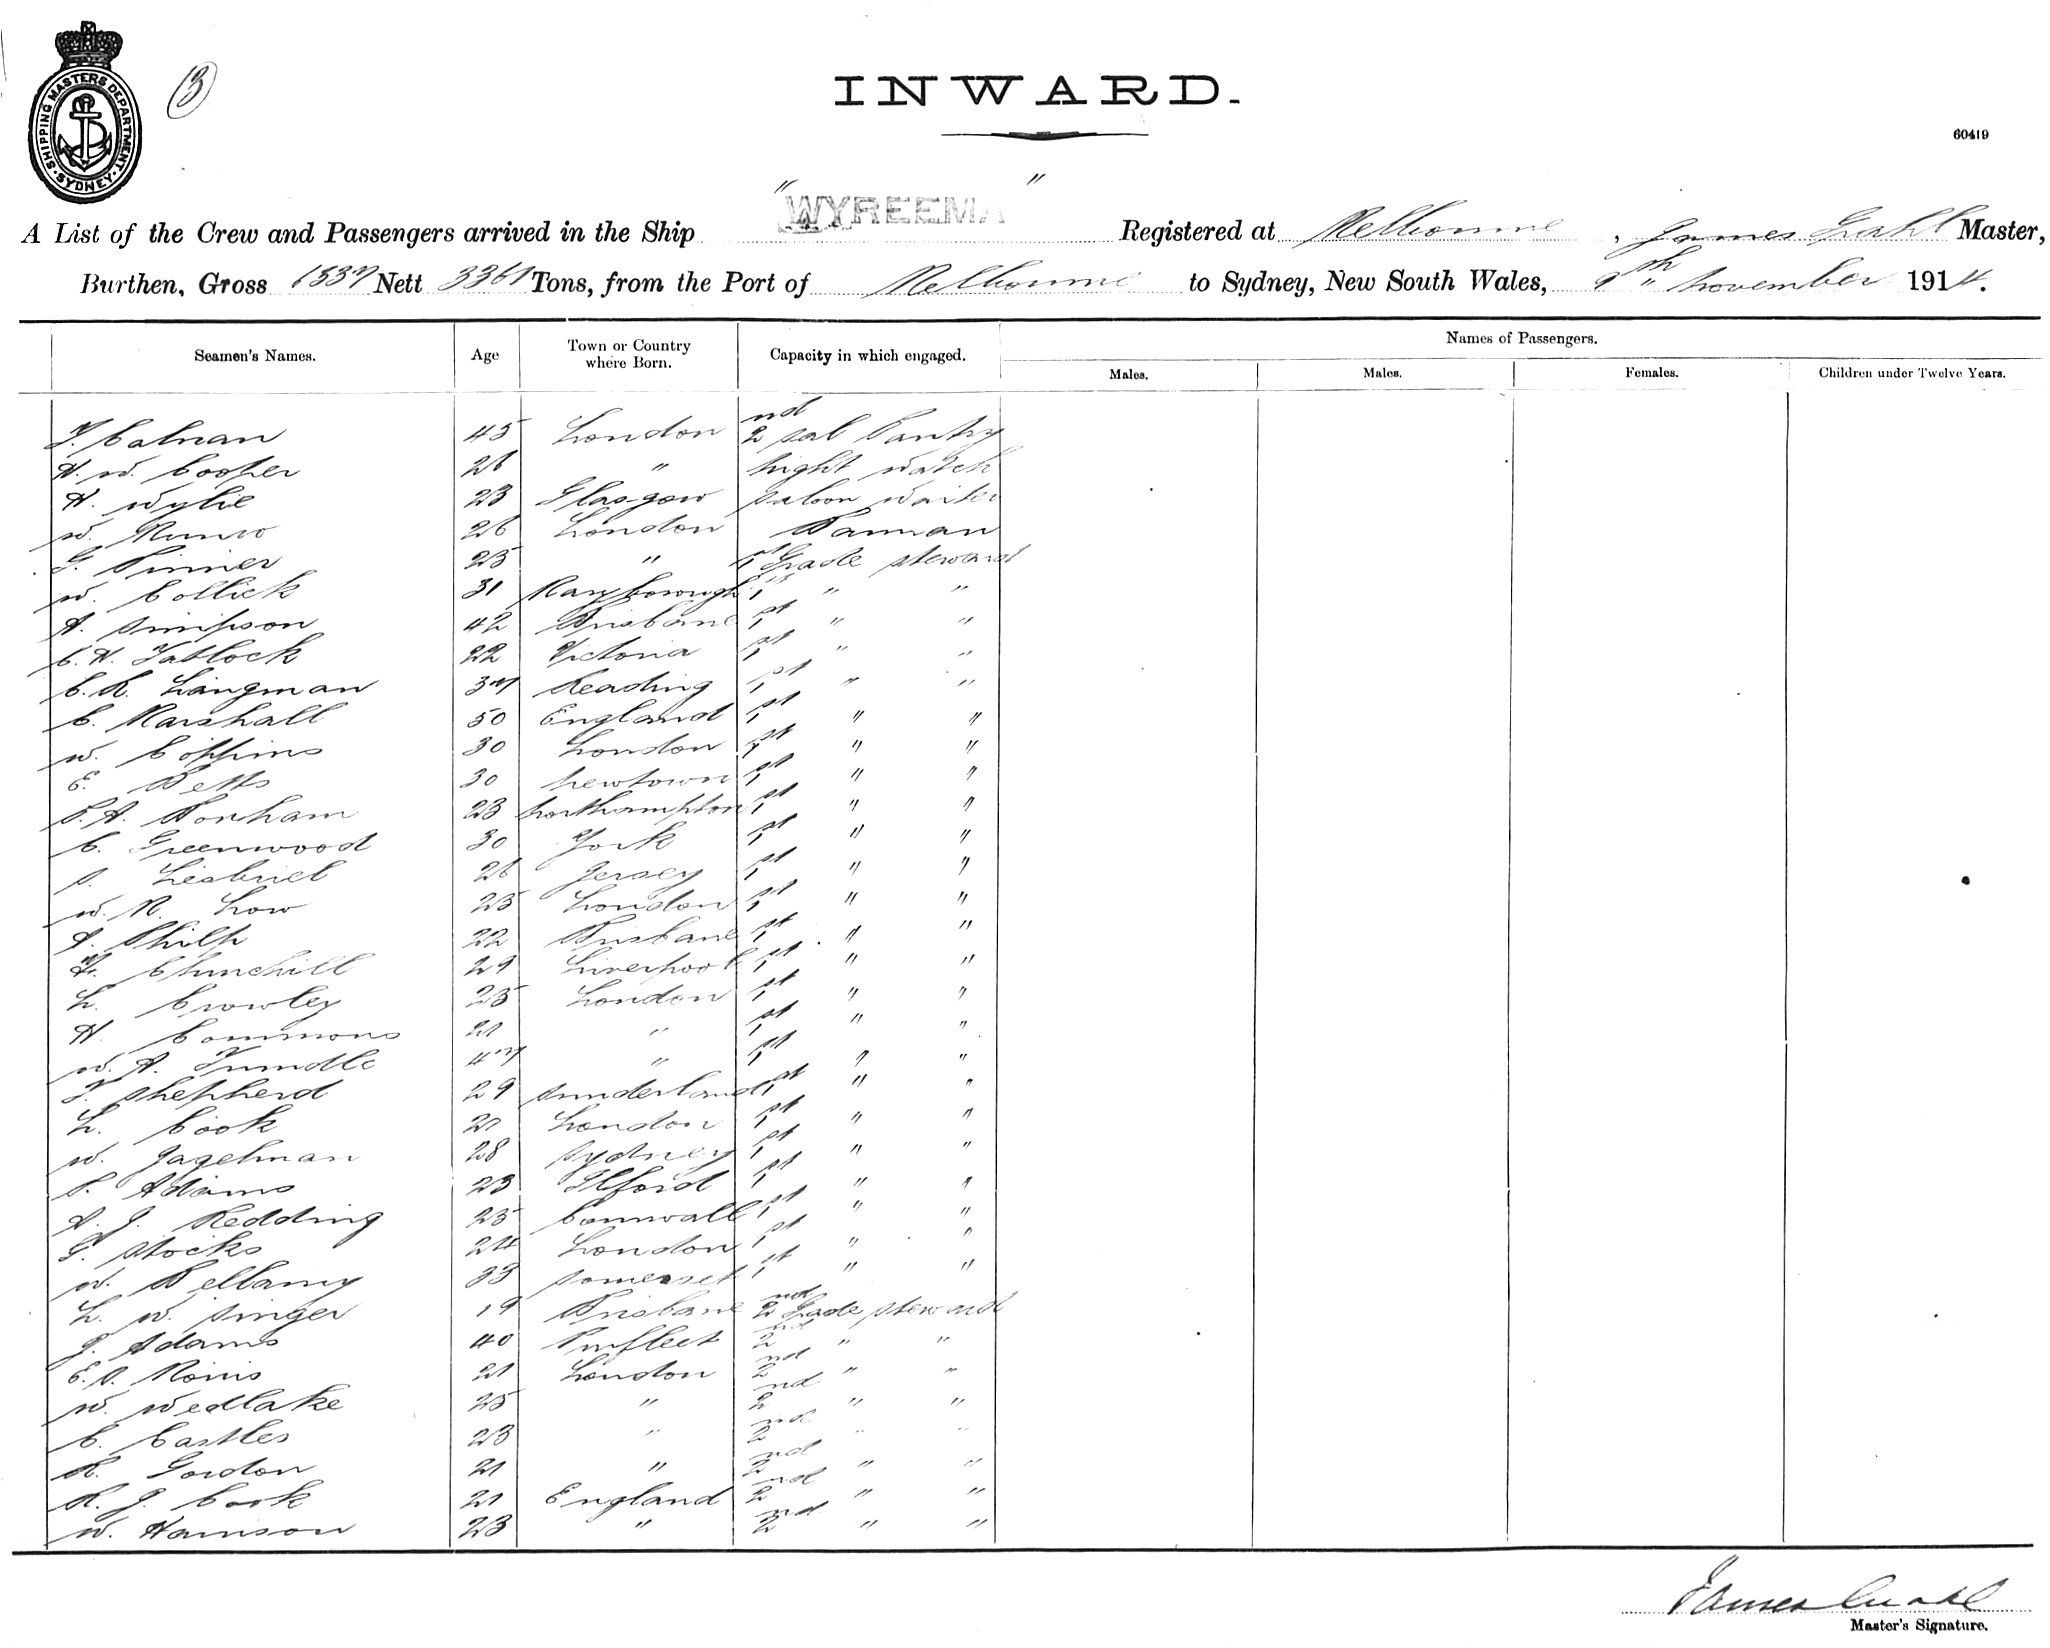 SHIPPING MASTERS DEPARTMENT
SYDNEY
(3)
INWARD.
60419
A List of the Crew and Passengers arrived in the Ship "WYREEMA" Registered at Melbourne, James Grahl Master,
Burthen, Gross Nett 3361 Tons, from the Port of Melbourne to Sydney, New South Wales, 9th November 1914.
Names of Passengers.
Seamen's Names. Age Town or Country where Born. Capacity in which engaged. Males. Males. Females. Children under Twelve Years.
Calnan 45 London 2nd Sal Pantry
H. W. Cooper 26 " Night Watch
H. Wylie 23 Glasgow Saloon Waiter
W. Munro 26 London
G. Pinner 25 " 1st Grade Steward
W. Collick 31 Maryborough 1st " "
A. Simpson 42 Brisbane 1st " "
C. H. Tatlock 22 Victoria 1st " "
C. R. Langman 37 Reading 1st " "
C. Marshall 50 England 1st " "
W. Coppins 30 London 1st " "
E. Betts 30 Newtown 1st " "
P. A. Bonham 23 Northampton 1st " "
C. Greenwood 30 York 1st " "
S. 26 Jersey 1st " "
W. R. Low 25 London 1st " "
A. Philp 22 Brisbane 1st " "
F. Churchill 29 Liverpool 1st " "
L. Crowley 25 London 1st " "
H. Commons 21 " 1st " "
W. A. Trundle 47 " 1st " "
T. Shepherd 29 Sunderland 1st " "
L. Cook 21 London 1st " "
W. Jagelman 28 Sydney 1st " "
P. Adams 23 Ilford 1st " "
A. J. Redding 25 Cornwall 1st " "
G. Stocks 24 London 1st " "
W. Bellamy 33 Somerset 1st " "
L. W. Singer 19 Brisbane 2nd Grade Steward
J. Adams 40 Purfleet 2nd " "
E. S. 21 London 2nd " "
W. Wedlake 25 " 2nd " "
C. Castles 23 " 2nd " "
R. Gordon 21 " 2nd " "
R. J. 21 England 2nd " "
W. Harrison 23 " 2nd " "
James Grahl
Master's Signature.